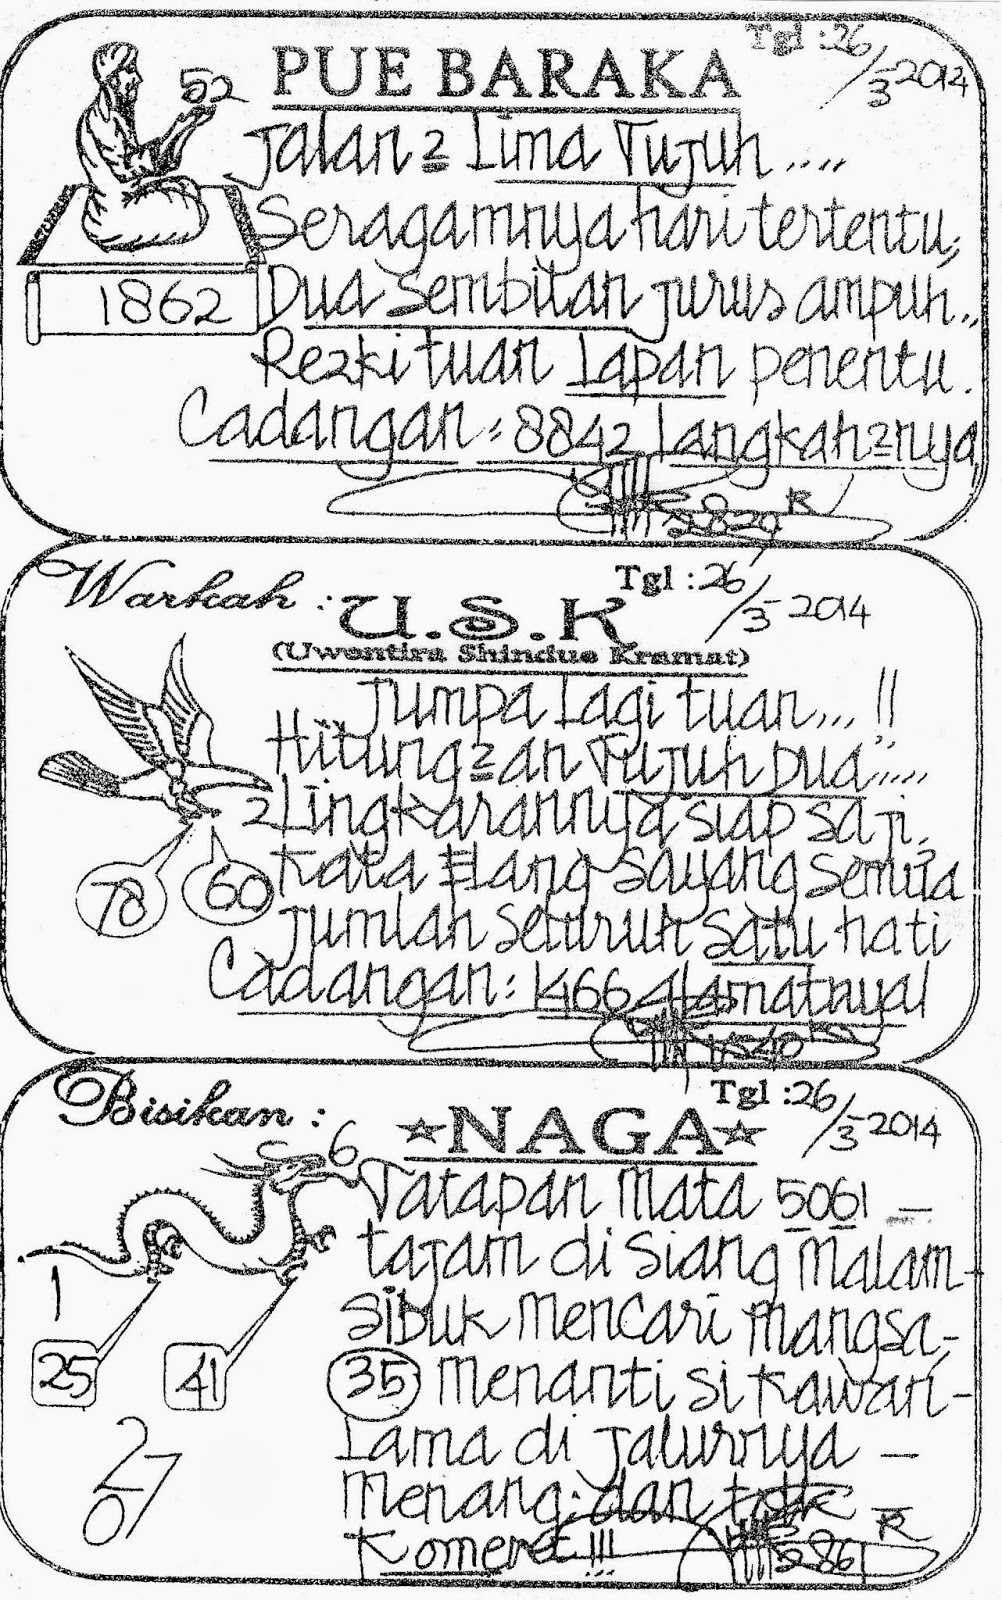 Tgl : 26/3-2014
PUE BARAKA
52
Jalan2 Lima Tujuh ....
Seragamnya hari tertentu,
1862
Dua sembilan jurus ampuh..
Rezki tuan Lapan penentu.
Cadangan : 8842 Langkah2nya
2829 R
Warkah : U.S.K
Tgl : 26/3-2014
(Uwentira Shindue Kramat)
Jumpa Lagi tuan... !!
Hitung2an Tujuh Dua.....
2
Lingkarannya siap saji,
78 60
Kata Elang sayang semua
Jumlah seluruh satu hati
Cadangan : 1466 Alamatnya
1540
Bisikan : NAGA
Tgl : 26/3-2014
6
Tatapan Mata 5061 -
tajam di siang malam -
1
sibuk mencari mangsa -
25 41
(35) menanti si kawan -
Lama di jalurnya -
2
07
menang : dan tdk
Komeret !!!
2861 R